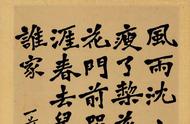 風雨沈
瘦了棃花
花門前
涯春去
誰家
一